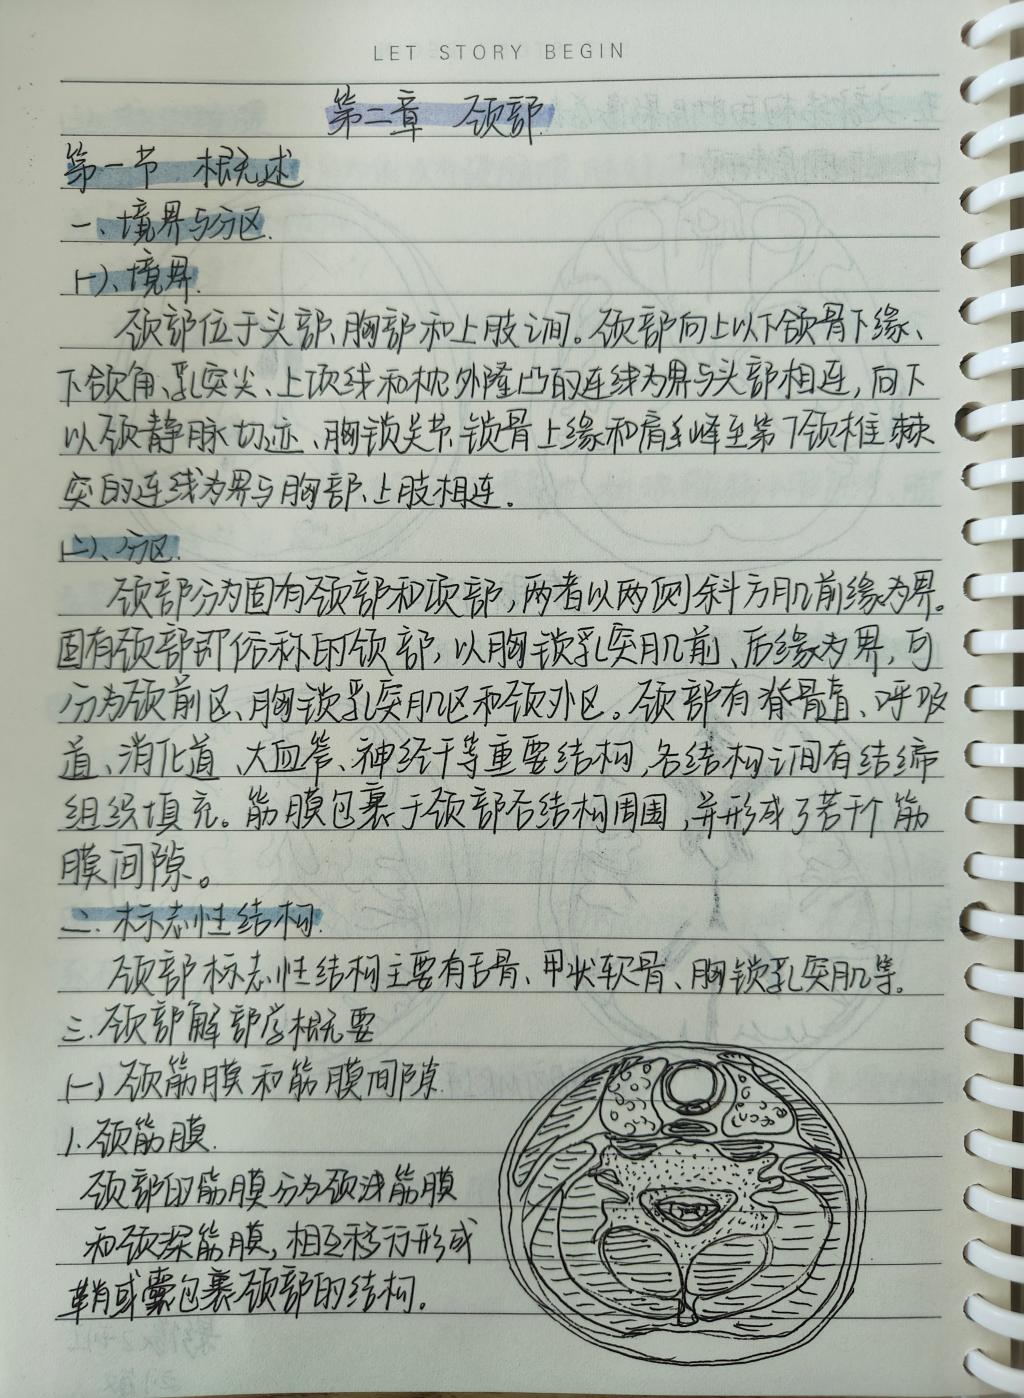 LET STORY BEGIN
第二章 颈部
第一节 概述
一、境界与分区
(一)、境界.
颈部位于头部、胸部和上肢之间。颈部向上以下颌骨下缘、
下颌角、乳突尖、上项线和枕外隆凸的连线为界与头部相连,向下
以颈静脉切迹、胸锁关节、锁骨上缘和肩峰至第7颈椎棘
突的连线为界与胸部、上肢相连。
(二)、分区.
颈部分为固有颈部和项部,两者以两侧斜方肌前缘为界。
固有颈部即俗称的颈部,以胸锁乳突肌前、后缘为界,可
分为颈前区、胸锁乳突肌区和颈外区。颈部有脊髓、呼吸
道、消化道、大血管、神经干等重要结构,各结构之间有结缔
组织填充。筋膜包裹于颈部各结构周围,并形成了若干个筋
膜间隙。
二.标志性结构.
颈部标志性结构主要有舌骨、甲状软骨、胸锁乳突肌等。
三.颈部解部学概要
(一)颈筋膜和筋膜间隙.
1.颈筋膜.
颈部的筋膜分为颈浅筋膜
和颈深筋膜,相互移行形成
鞘或囊包裹颈部的结构。